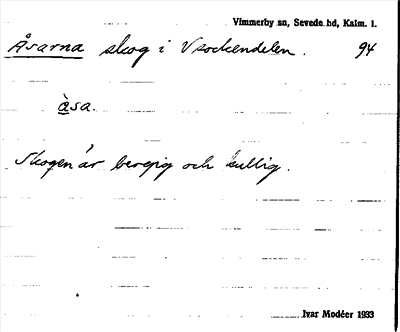 Vimmerby sn, Sevede hd, Kalm. l.
Åsarna skog i V sockendelen. 94
åsa.
Skogen är bergig och kullig.
Ivar Modéer 1933